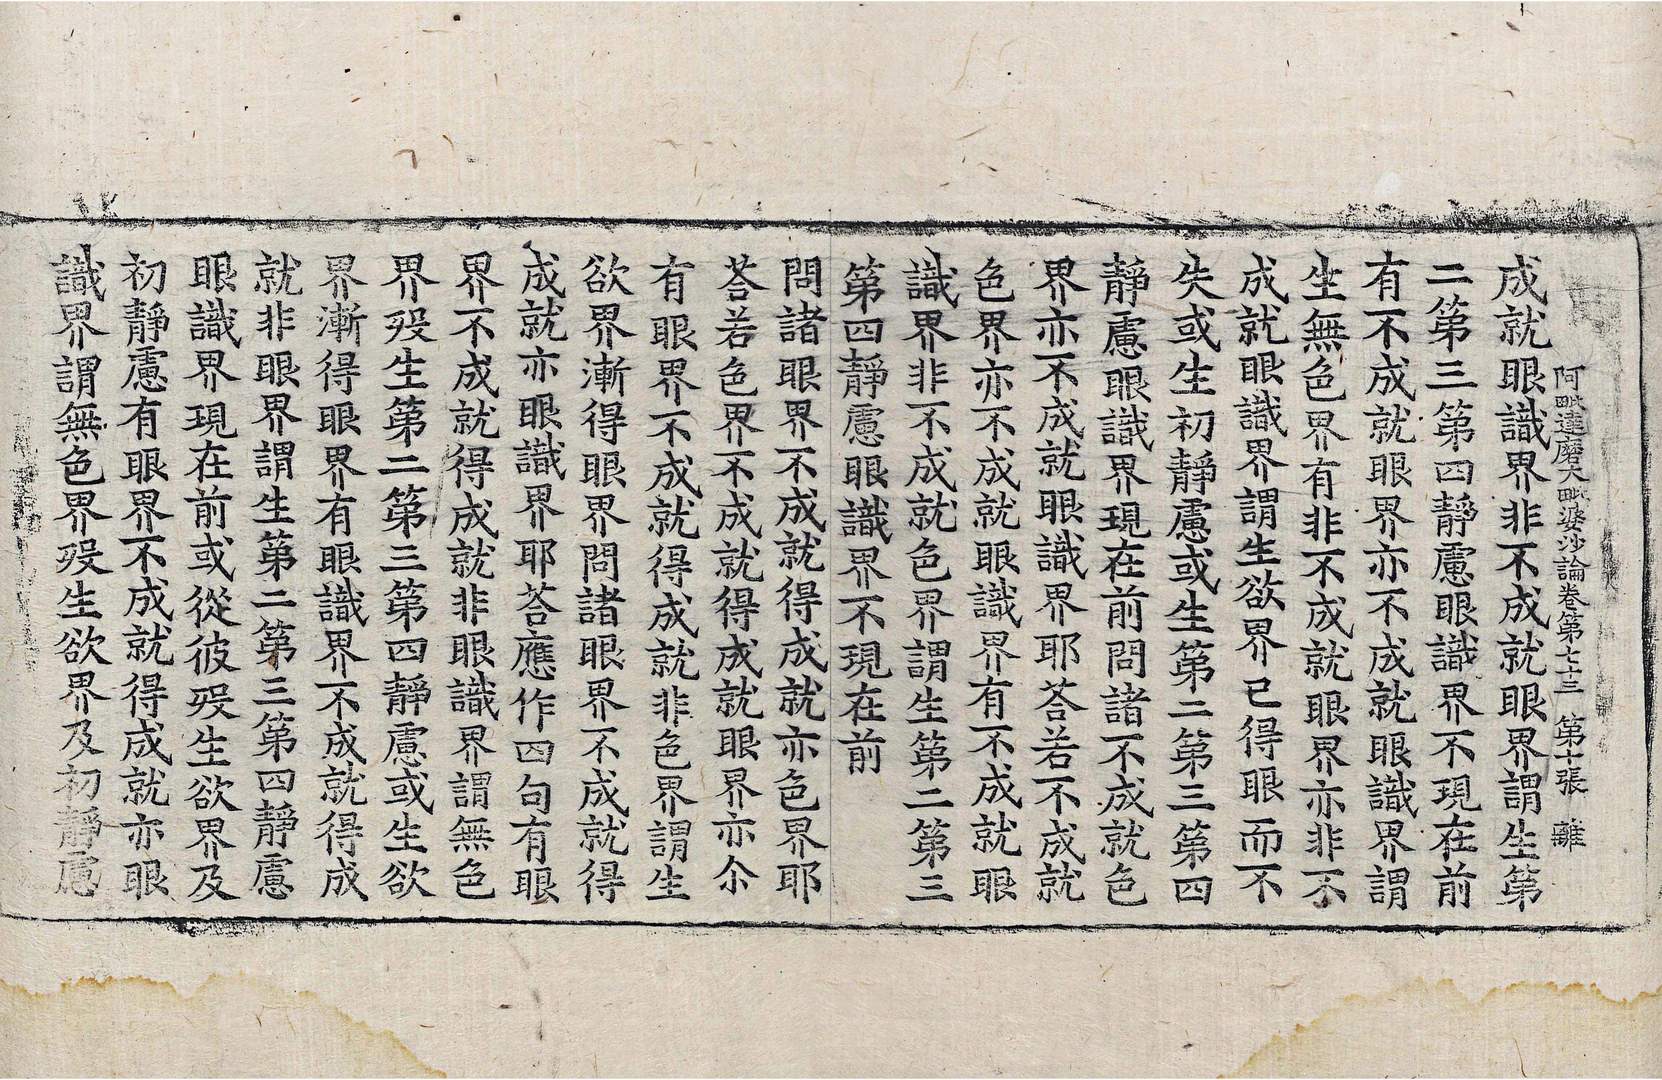 阿毗達磨大毗婆沙論卷第七十三 第十張 離
成就眼識界非不成就眼界謂生第
二第三第四靜慮眼識界不現在前
有不成就眼界亦不成就眼識界謂
生無色界有非不成就眼界亦非不
成就眼識界謂生欲界已得眼而不
失或生初靜慮或生第二第三第四
靜慮眼識界現在前問諸不成就色
界亦不成就眼識界耶荅若不成就
色界亦不成就眼識界有不成就眼
識界非不成就色界謂生第二第三
第四靜慮眼識界不現在前
問諸眼界不成就得成就亦色界耶
荅若色界不成就得成就眼界亦尒
有眼界不成就得成就非色界謂生
欲界漸得眼界問諸眼界不成就得
成就亦眼識界耶荅應作四句有眼
界不成就得成就非眼識界謂無色
界歿生第二第三第四靜慮或生欲
界漸得眼界有眼識界不成就得成
就非眼界謂生第二第三第四靜慮
眼識界現在前或從彼歿生欲界及
初靜慮有眼界不成就得成就亦眼
識界謂無色界歿生欲界及初靜慮